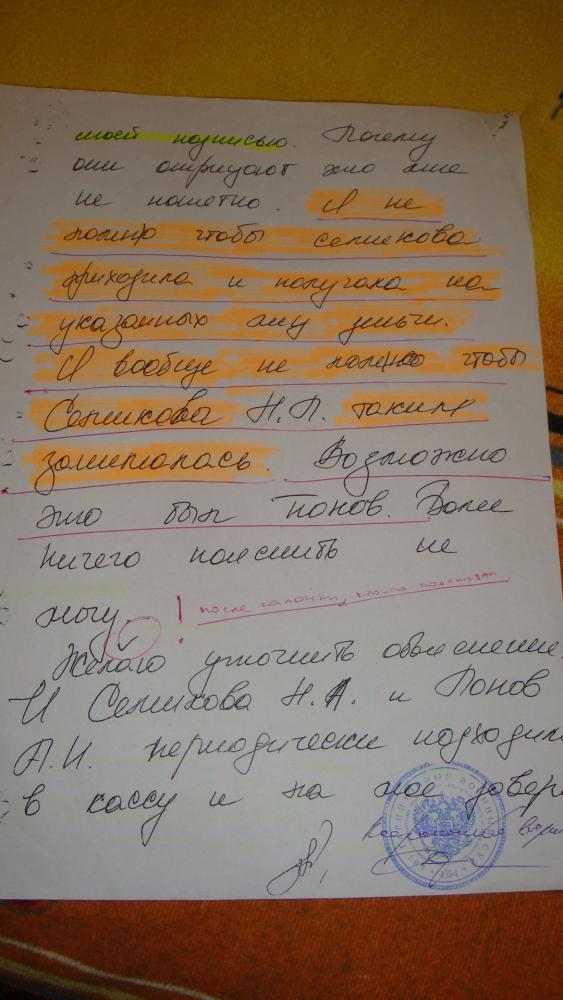 моей подписью. Почему
они отрицают это мне
не понятно. Я не
помню чтобы Семикова
приходила и получала на
указанных ему деньги.
И вообще не помню чтобы
Семикова Н.А. таким
занималась. Возможно
это был Попов. Более
ничего пояснить не
могу.
! после галочки, кто-то подсказал
Желаю уточнить объяснение.
И Семикова Н.А. и Попов
А.И. периодически подходили
в кассу и на мое довер